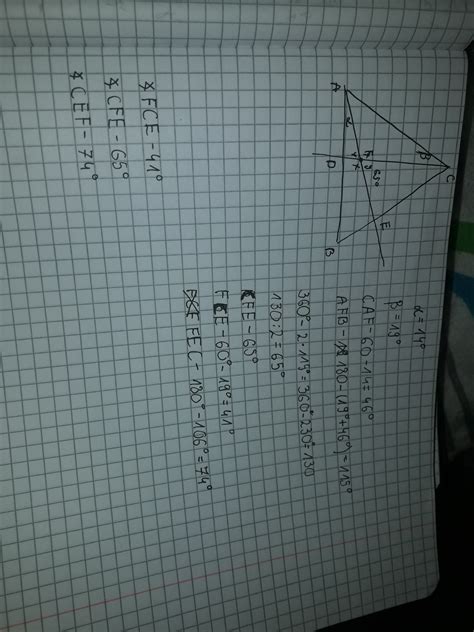 C
β
65°
E
F
x
A
α
D
B
α = 14°
β = 19°
CAF - 60 - 14 = 46°
AFB - 180 - (19° + 46°) = 115°
360° - 2 · 115° = 360° - 230° = 130
130 : 2 = 65°
CFE - 65°
FCE - 60° - 19° = 41°
FEC - 180° - 106° = 74°
∢ FCE - 41°
∢ CFE - 65°
∢ CEF - 74°